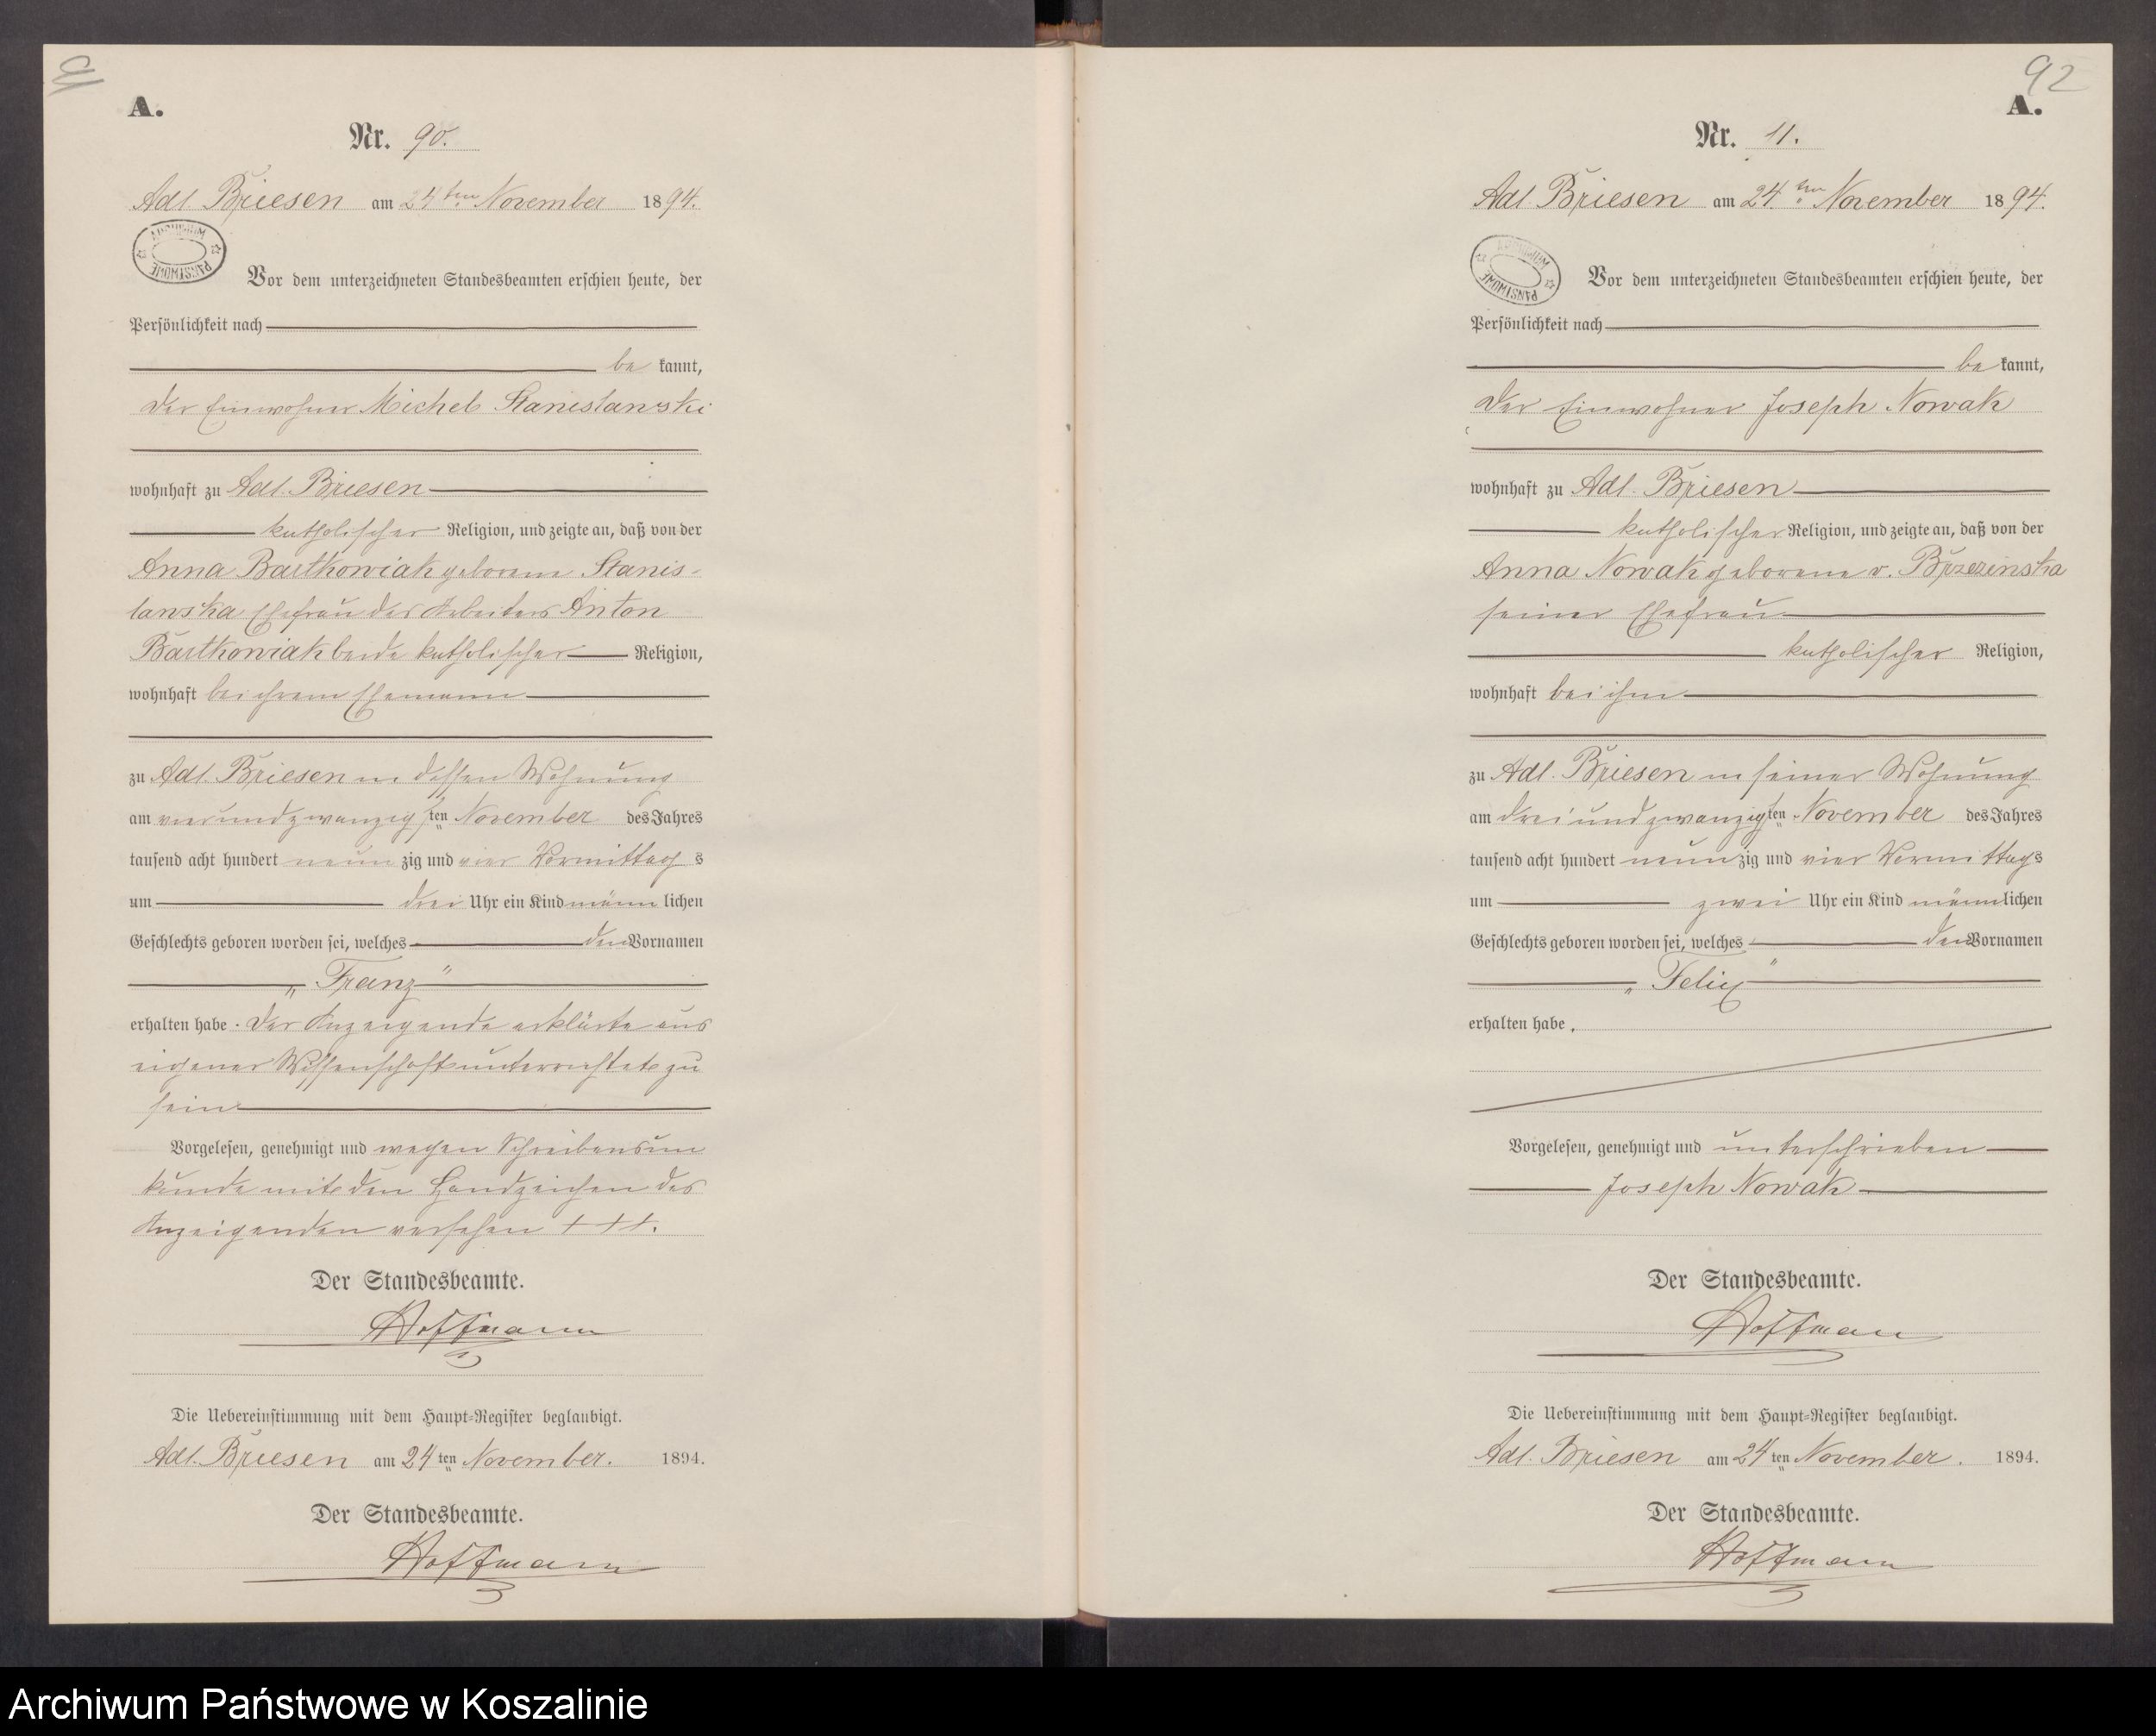 A.
Nr. 90.
Adl. Briesen am 24ten November 1894.
ARCHIWUM
PAŃSTWOWE
Vor dem unterzeichneten Standesbeamten erschien heute, der
Persönlichkeit nach
be kannt,
der Einwohner Michel Stanislawski
wohnhaft zu Adl. Briesen
katholischer Religion, und zeigte an, daß von der
Anna Bartkowiak geborene Stanis-
lawska Ehefrau des Arbeiters Anton
Bartkowiak beide katholischer Religion,
wohnhaft bei ihrem Ehemann
zu Adl. Briesen in dessen Wohnung
am vierundzwanzigsten November des Jahres
tausend acht hundert neun zig und vier Vormittag s
um drei Uhr ein Kind männ lichen
Geschlechts geboren worden sei, welches den Vornamen
„Franz“
erhalten habe. Der Anzeigende erklärte aus
eigener Wissenschaft unterrichtet zu
sein
Vorgelesen, genehmigt und wegen Schreibensun
kunde mit den Handzeichen des
Anzeigenden versehen + + +.
Der Standesbeamte.
Hoffmann
Die Uebereinstimmung mit dem Haupt=Register beglaubigt.
Adl. Briesen am 24ten November. 1894.
Der Standesbeamte.
Hoffmann
92
A.
Nr. 11.
Adl. Briesen am 24.ten November 1894.
ARCHIWUM
PAŃSTWOWE
Vor dem unterzeichneten Standesbeamten erschien heute, der
Persönlichkeit nach
be kannt,
der Einwohner Joseph Nowak
wohnhaft zu Adl. Briesen
katholischer Religion, und zeigte an, daß von der
Anna Nowak geborene v. Brzezinska
seiner Ehefrau
katholischer Religion,
wohnhaft bei ihm
zu Adl. Briesen in seiner Wohnung
am dreiundzwanzigsten November des Jahres
tausend acht hundert neun zig und vier Vormittag s
um zwei Uhr ein Kind männ lichen
Geschlechts geboren worden sei, welches den Vornamen
„Felix“
erhalten habe.
Vorgelesen, genehmigt und unterschrieben
Joseph Nowak
Der Standesbeamte.
Hoffmann
Die Uebereinstimmung mit dem Haupt=Register beglaubigt.
Adl. Briesen am 24ten November. 1894.
Der Standesbeamte.
Hoffmann
Archiwum Państwowe w Koszalinie